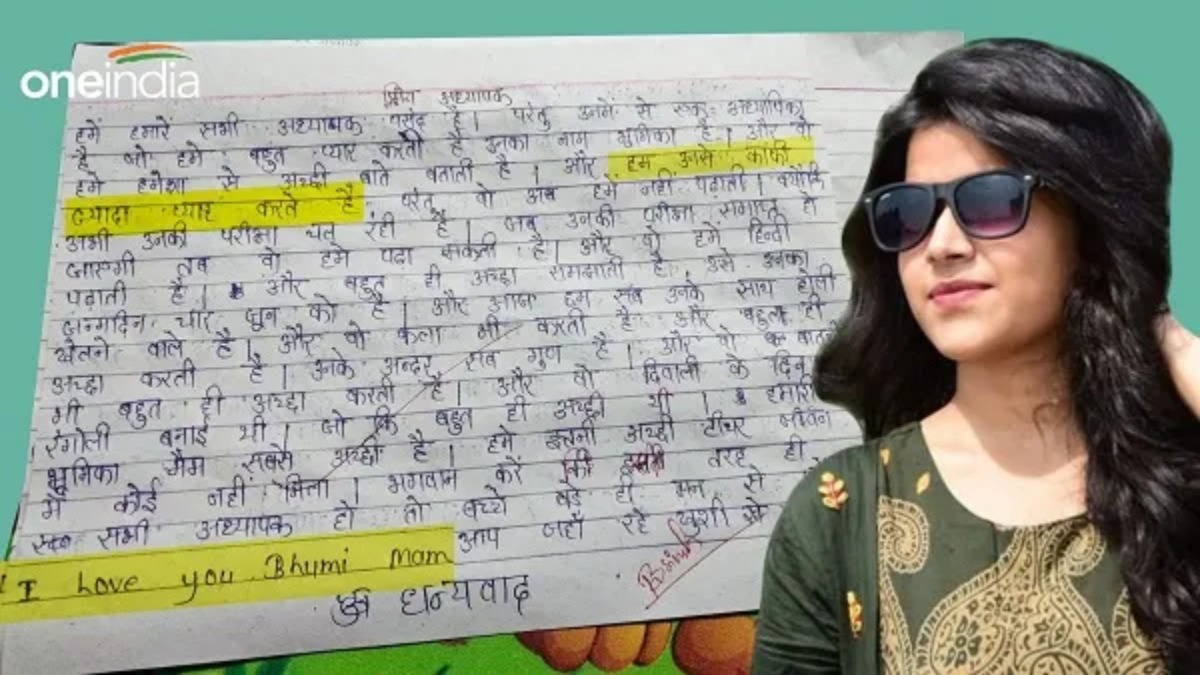 oneindia
प्रिय अध्यापक
हमें हमारें सभी अध्यापक पसंद है। परंतु उनमें से एक अध्यापिका
है जो हमे बहुत प्यार करती है उनका नाम भुमिका है। और वो
हमे हमेशा से अच्छी बाते बताती है। और हम उनसे काफी
ज्यादा प्यार करते है परंतु वो अब हमे नहीं पढ़ाती। क्योंकि
अभी उनकी परीक्षा चल रही है। जब उनकी परीक्षा समाप्त हो
जाएगी तब वो हमे पढ़ा सकती है। और वो हमें हिन्दी
पढ़ाती है। और बहुत ही अच्छा समझाती है उनका
जन्मदिन चार जून को है। और आज हम सब उनके साथ होली
खेलने वाले है। और वो कला भी करती है और बहुत ही
अच्छा करती है। उनके अन्दर सब गुण है। और वो
भी बहुत ही अच्छा करती है। और वो दिवाली के दिन
रंगोली बनाई थी। जो कि बहुत ही अच्छी थी। हमारी
भूमिका मैम सबसे अच्छी है। हमे इतनी अच्छी टीचर जीवन
में कोई नहीं मिला। भगवान करें की तरह ही
सभी अध्यापक हो तो बच्चे बड़े ही मन से
I Love you Bhumi Mam आप जहाँ रहे खुशी से
धन्यवाद